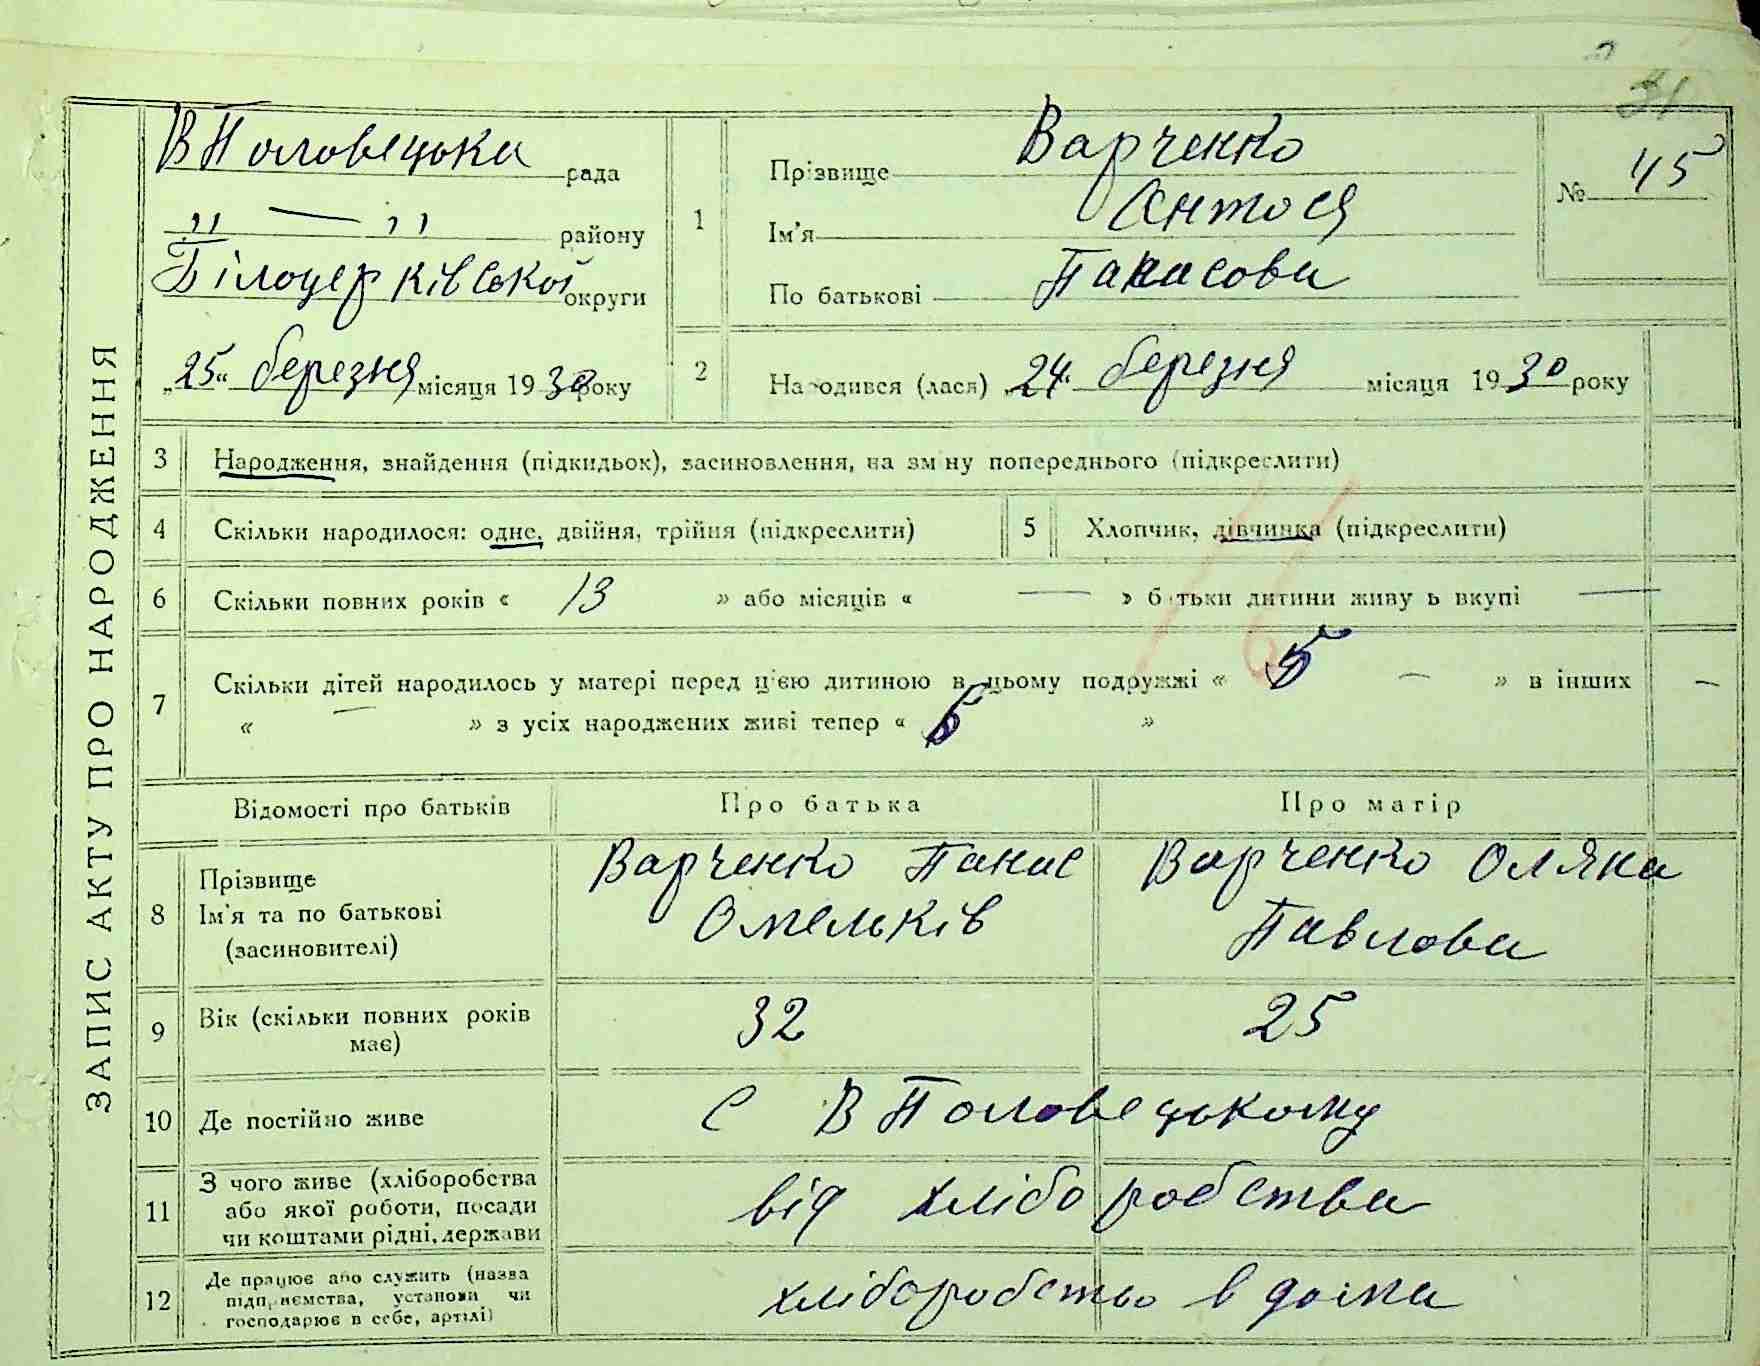 31
ЗАПИС АКТУ ПРО НАРОДЖЕННЯ
В Половецька рада
" — " району
Білоцерківської округи
„25“ березня місяця 1930 року
1
Прізвище Варченко
Ім'я Антося
По батькові Панасова
№ 45
2
Народився (лася) „24“ березня місяця 1930 року
3 Народження, знайдення (підкидьок), засиновлення, на зміну попереднього (підкреслити)
4 Скільки народилося: одне, двійня, трійня (підкреслити)
5 Хлопчик, дівчинка (підкреслити)
6 Скільки повних років « 13 » або місяців « — » батьки дитини живуть вкупі —
7 Скільки дітей народилось у матері перед цією дитиною в цьому подружжі « 5 — » в інших —
« — » з усіх народжених живі тепер « »
Відомості про батьків
Про батька
Про матір
8 Прізвище
Ім'я та по батькові
(засиновителі)
Варченко Панас
Омельків
Варченко Оляна
Павлова
9 Вік (скільки повних років
має)
32
25
10 Де постійно живе
с В Половецькому
11 З чого живе (хліборобства
або якої роботи, посади
чи коштами рідні, держави
від хліборобства
12 Де працює або служить (назва
підприємства, установи чи
господарює в себе, артілі)
хліборобство в дома